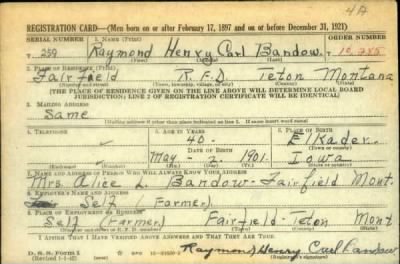 4A
REGISTRATION CARD—(Men born on or after February 17, 1897 and on or before December 31, 1921)
SERIAL NUMBER 1. NAME (Print) ORDER NUMBER
T 259 Raymond Henry Carl Bandow T 10,785
(First) (Middle) (Last)
2. PLACE OF RESIDENCE (Print)
Fairfield R.F.D Teton Montana
(Number and street) (Town, township, village, or city) (County) (State)
[THE PLACE OF RESIDENCE GIVEN ON THE LINE ABOVE WILL DETERMINE LOCAL BOARD
JURISDICTION; LINE 2 OF REGISTRATION CERTIFICATE WILL BE IDENTICAL]
3. MAILING ADDRESS
Same
[Mailing address if other than place indicated on line 2. If same insert word same]
4. TELEPHONE 5. AGE IN YEARS 6. PLACE OF BIRTH
40 Elkader
DATE OF BIRTH (Town or county)
May 2 1901 Iowa
(Exchange) (Number) (Mo.) (Day) (Yr.) (State or country)
7. NAME AND ADDRESS OF PERSON WHO WILL ALWAYS KNOW YOUR ADDRESS
Mrs. Alice L. Bandow - Fairfield Mont.
8. EMPLOYER'S NAME AND ADDRESS
Self (Farmer)
9. PLACE OF EMPLOYMENT OR BUSINESS
Self (Farmer) Fairfield - Teton Mont
(Number and street or R. F. D. number) (Town) (County) (State)
I AFFIRM THAT I HAVE VERIFIED ABOVE ANSWERS AND THAT THEY ARE TRUE.
D. S. S. Form 1
(Revised 1-1-42) GPO Raymond Henry Carl Bandow